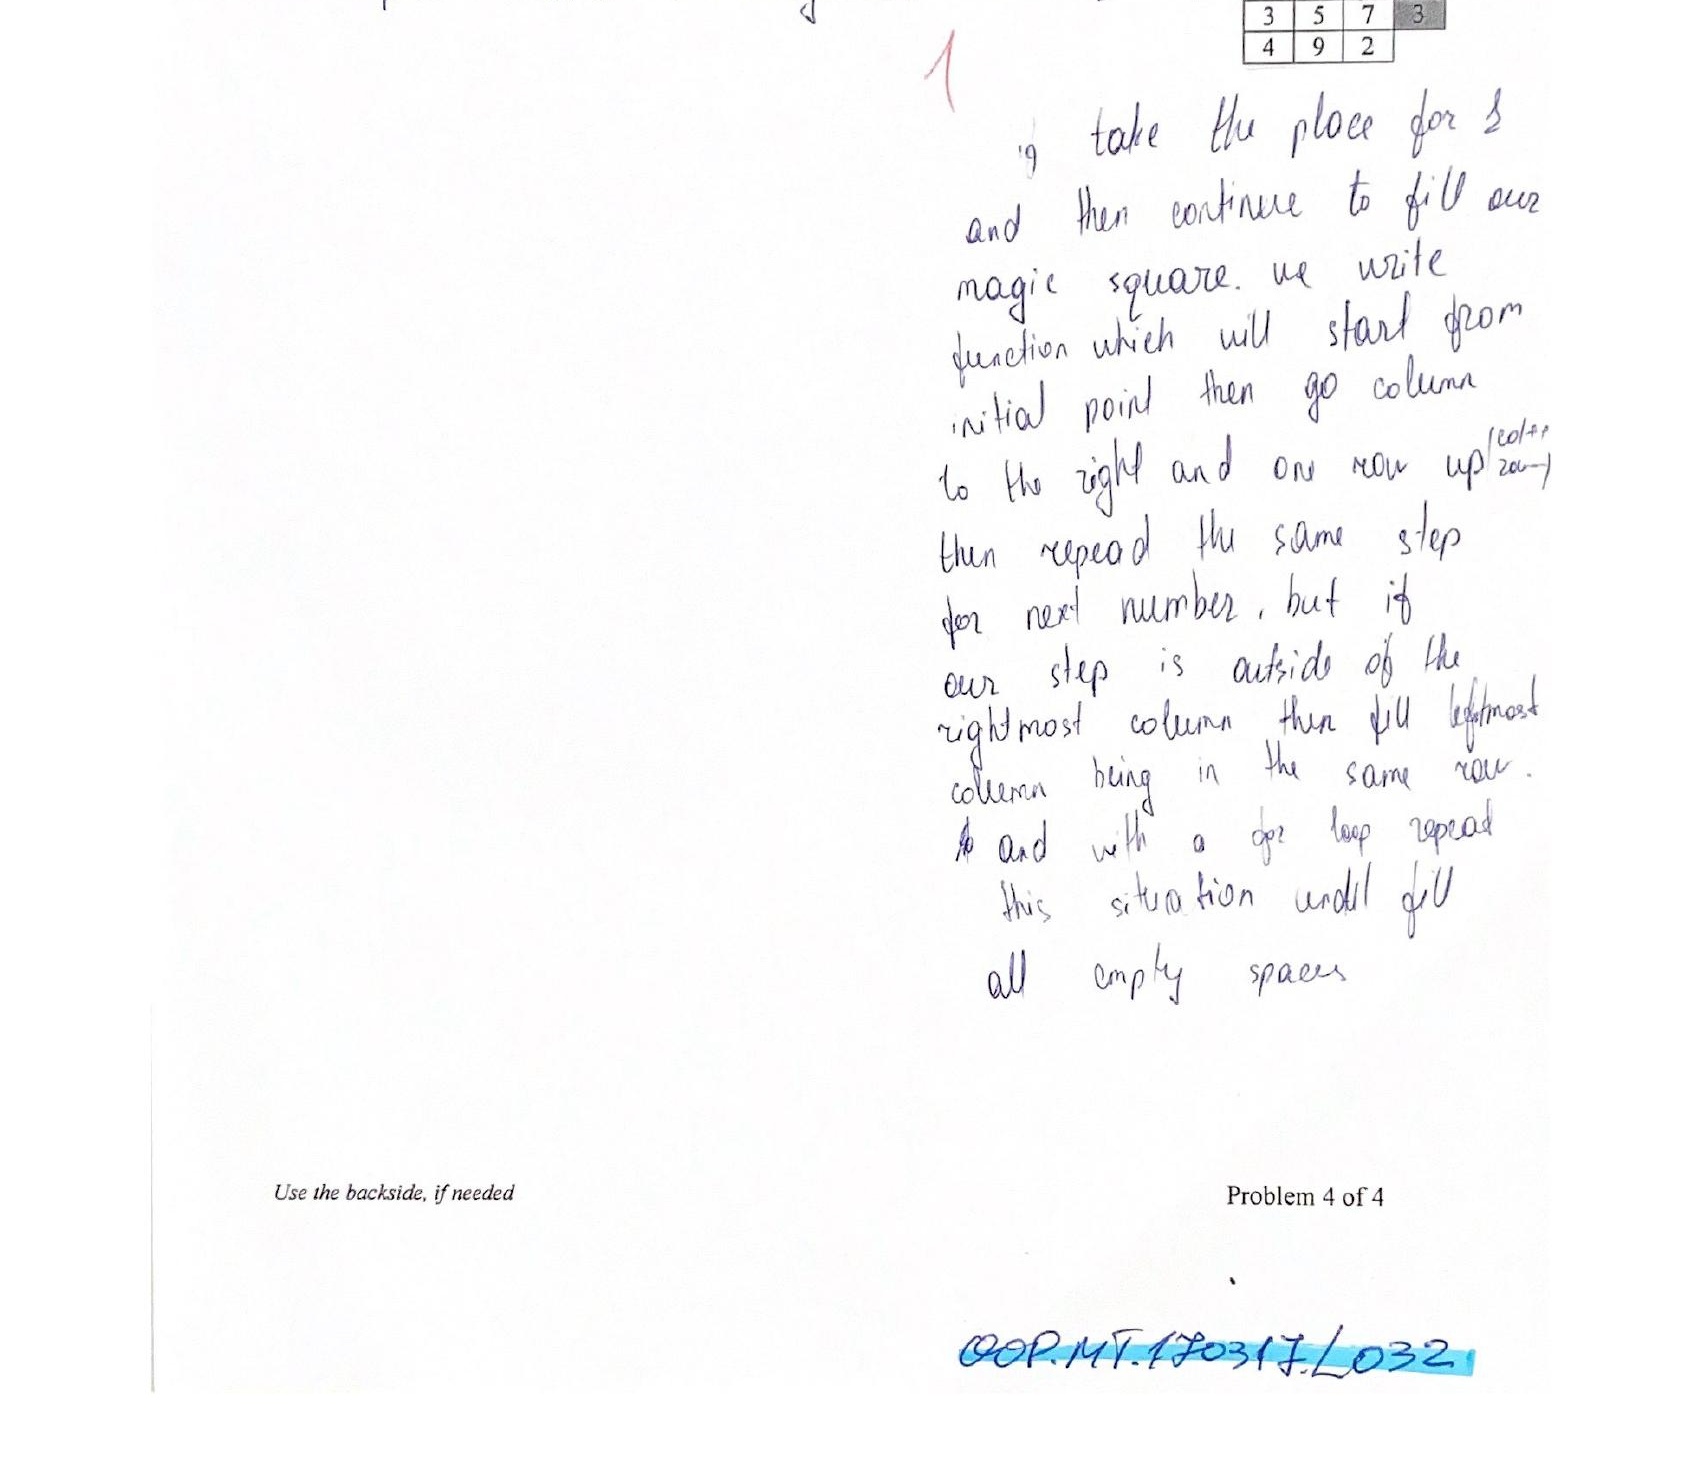 3 5 7 3
4 9 2
1
take the place for 1
and then continue to fill our
magic square. we write
function which will start from
initial point then go column
to the right and one row up (col++
row--)
then repead the same step
for next number, but if
our step is outside of the
rightmost column then fill leftmost
column being in the same row.
and with a for loop repead
this situation until fill
all empty spaces
Use the backside, if needed
Problem 4 of 4
OOP.MT.170317./032